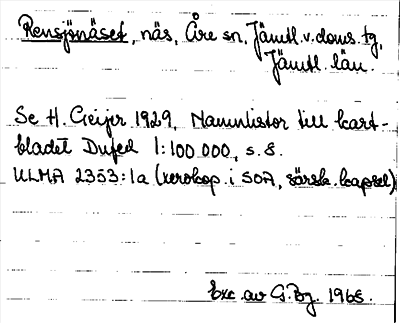 Rensjönäset, näs, Åre sn, Jämtl. v. doms. tg,
Jämtl. län.
Se H. Geijer 1929, Namnlistor till kart-
bladet Dufed 1:100 000, s. 8.
ULMA 2353:1a (xerokop. i SOA, särsk. kapsel)
Exc. av G. Bg. 1965.